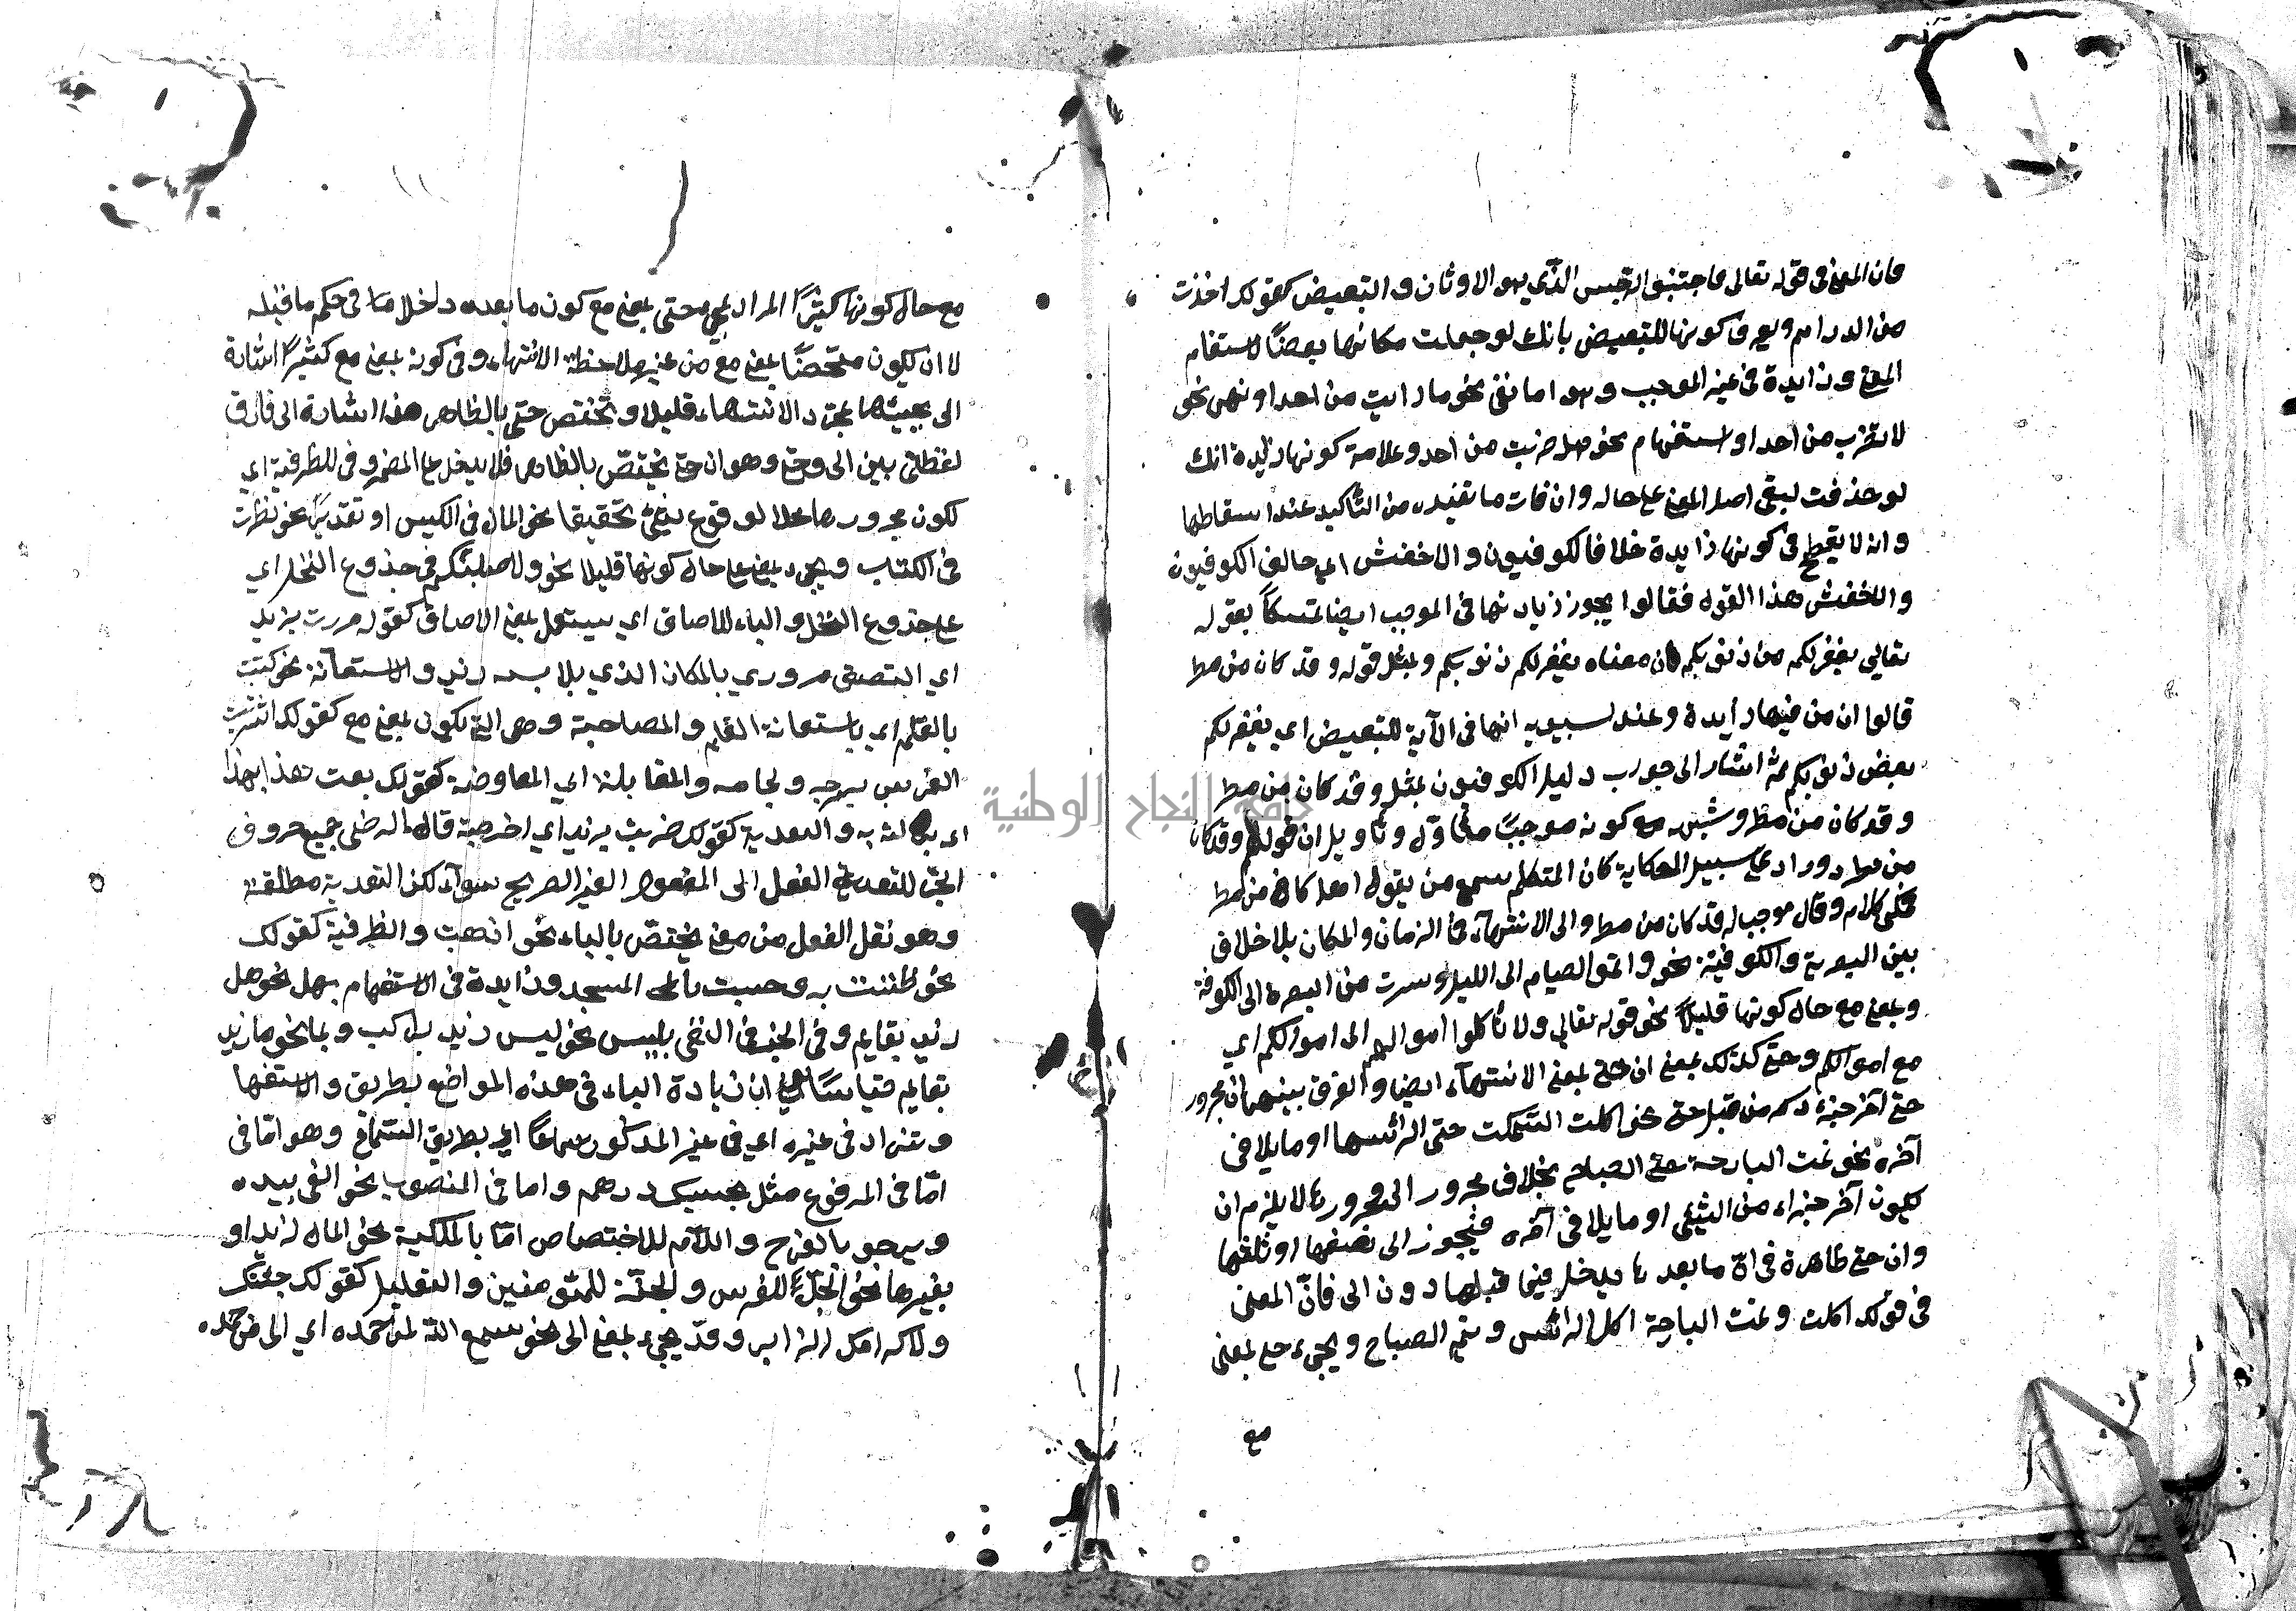 فان المعنى فى قوله تعالى فاجتنبوا الرجس الذي هو الاوثان والتبعيض كقولك اخذت
من الدراهم ويعرف كونها للتبعيض بانك لو جعلت مكانها بعضا لاستقام
المعنى وزايدة فى غير الموجب وهو اما نفى نحو ما رايت من احد او نهى نحو
لا تضرب من احد او استفهام نحو هل ضربت من احد وعلامة كونها زايدة انك
لو حذفت لبقى اصل المعنى على حاله وان فات ما تفيده من التأكيد عند اسقاطها
وانه لا يقدح فى كونها زايدة خلافا للكوفيون والاخفش اي خالف الكوفيون
والاخفش هذا القول فقالوا يجوز زيادتها فى الموجب ايضا تمسكاً بقوله
تعالي يغفر لكم من ذنوبكم فان معناه يغفر لكم ذنوبكم وبمثل قوله وقد كان من مطر
قالوا ان من فيها زايدة وعند لسيبويه انها فى الآية للتبعيض اي يغفر لكم
بعض ذنوبكم ثم اشار الى جواب دليل الكوفيون بمثل وقد كان من مطر
وقد كان من مطر وشبهه مع كونه موجبًا متأول وتأويل ان قولهم وقد كان
من مطر ورد على سبيل الحكاية كان المتكلم سمع من يقول هل كان من مطر
فحكى كلامه وقال موجبا له قد كان من مطر والى الانتهآء فى الزمان والمكان بلا خلاف
بين البصرية والكوفية نحو واتموا الصيام الى الليل وسرت من البصرة الى الكوفة
وبمعنى مع حال كونها قليلاً نحو قوله تعالي ولا تأكلوا اموالهم الى اموالكم اي
مع اموالكم وحتى كذلك بمعنى ان حتى بمعنى الانتهآء ايضا والفرق بينهما ان مجرور
حتى آخر جزء من قبل حتى نحو اكلت السمكت حتى الرأسها او ما يلاقى
آخره نحو نمت البارحة حتى الصباح بخلاف مجرور الى ومجرورها لا يلزم ان
يكون آخر جزاء من الشيئ او ما يلاقى آخره فيجوز الى نصفها او ثلثها
وان حتى ظاهرة فى ان ما بعدها يدخل فيما قبلها دون الى فانّ المعنى
فى قولك اكلت ونمت البارحة اكل الرأس ونيم الصباح ويجيء حتى بمعنى
مع
مع حال كونها كثيرًا المراد بمجى حتى بمعنى مع كون ما بعده داخلا فى حكم ما قبله
لا ان يكون متمحضًا بمعنى مع من غير ملاحظة الانتهاء وفى كونه بمعنى مع كثيرًا اشارة
الى مجيئها لمجرد الانتهاء قليلا وتختص حتى بالظاهر هذا اشارة الى فارق
لفظى بين الى وحتى وهو ان حتى يختصّ بالظاهر فلا يدخل على المضمر وفى للظرفية اي
لكون مجرورها محلا لوقوع شيئ تحقيقا نحو المال فى الكيس او تقديرًا نحو نظرت
فى الكتاب ويجيء بمعنى على حال كونها قليلا نحو ولاصلبنّكم فى جذوع النخل اي
على جذوع النخل والباء للالصاق اي يستعمل بمعنى الالصاق كقوله مررت بزيد
اي التصق مروري بالمكان الذي يلابسه زيد والاستعانة نحو كتبت
بالقلم اي باستعانة القلم والمصاحبة وهى التي يكون بمعنى مع كقولك اشتريت
الفرس بسرجه ولجامه والمقابلة اي المعاوضة كقولك بعت هذا بهذا
والتعدية كقولك ضربت بزيد اي قال الرضى جميع حروف
الجرّ لتعدية الفعل الى المفعول الغير الصريح سوآء لكن التعدية مطلقة
وهو نقل الفعل من معنى يختصّ بالباء نحو اذهبت والظرفية كقولك
نحو ظننت به وجلست بالمسجد وزايدة فى الاستفهام بهل نحو هل
زيد بقايم وفى الخبر فى النفى بليس نحو ليس زيد براكب وبما نحو ما زيد
بقايم قياسًا يعني ان زيادة الباء فى هذه المواضع بطريق والاستفها
وتزاد فى غيره اي فى غير المذكور سماعًا اي بطريق السّماع وهو امّا فى
امّا فى المرفوع مثل بحسبك درهم واما فى المنصوب نحو القى بيده
ونرجو بالفرج واللآم للاختصاص امّا بالملكية نحو المال لزيد او
بغيرها نحو الجلّ للفرس والجنّة للمؤمنين والتعليل كقولك جئتك
ولاكرامك الزاير وقد يجيء بمعنى الى نحو سمع اللّه لمن حمده اي الى من حمده
جامعة النجاح الوطنية